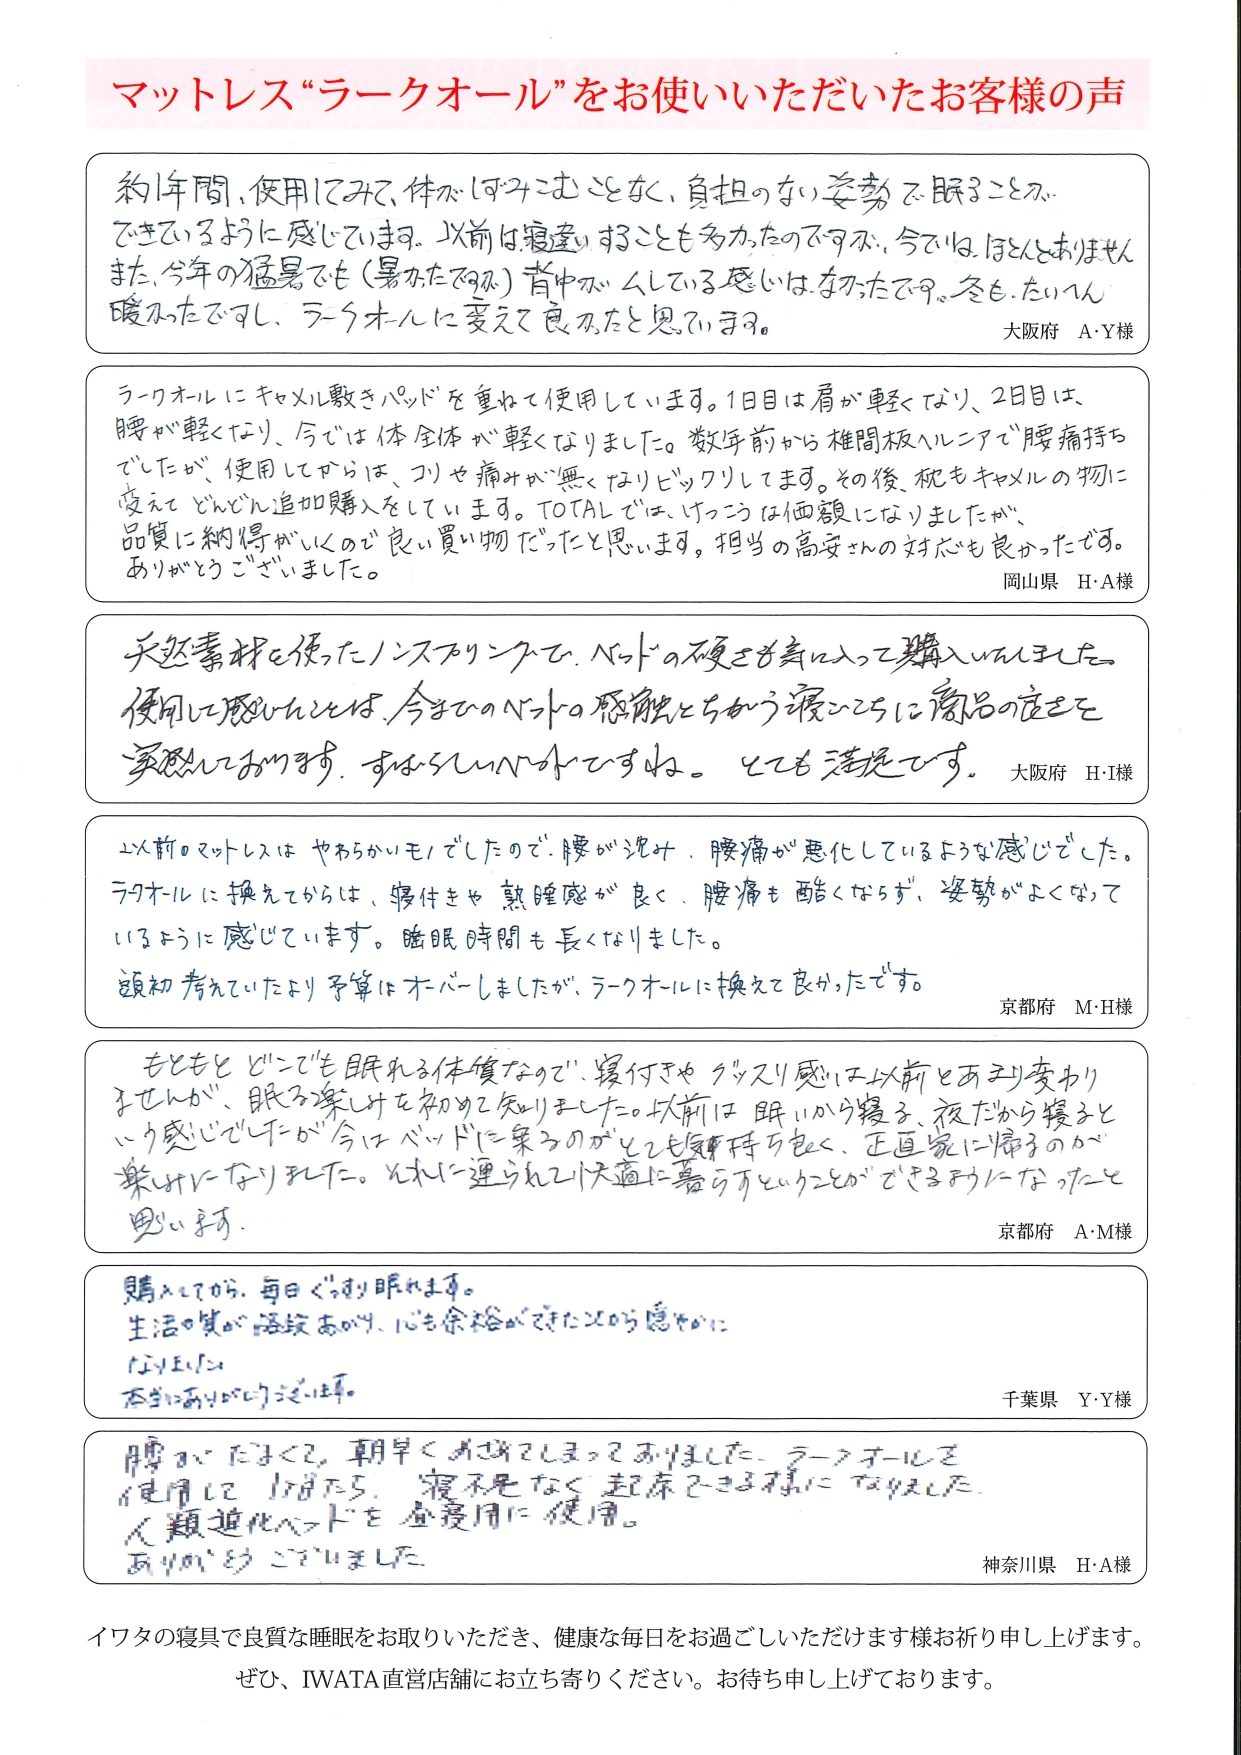 マットレス“ラークオール”をお使いいただいたお客様の声
約1年間、使用してみて、体がしずみこむことなく、負担のない姿勢で眠ることが
できているように感じています。以前は寝違いすることも多かったのですが、今ではほとんどありません
また、今年の猛暑でも(暑かったですが)背中がムしている感じはなかったです。冬も、たいへん
暖かったですし、ラークオールに変えて良かったと思っています。
大阪府 A・Y様
ラークオールにキャメル敷きパッドを重ねて使用しています。1日目は肩が軽くなり、2日目は、
腰が軽くなり、今では体全体が軽くなりました。数年前から椎間板ヘルニアで腰痛持ち
でしたが、使用してからは、コリや痛みが無くなりビックリしてます。その後、枕もキャメルの物に
変えてどんどん追加購入をしています。TOTALでは、けっこうな価額になりましたが、
品質に納得がいくので良い買い物だったと思います。担当の高安さんの対応も良かったです。
ありがとうございました。
岡山県 H・A様
天然素材を使ったノンスプリングで、ベッドの硬さも気に入って購入いたしました。
使用して感じたことは、今までのベットの感触とちがう寝ごこちに商品の良さを
実感しております。すばらしいベットですね。とても満足です。
大阪府 H・I様
以前のマットレスはやわらかいモノでしたので、腰が沈み、腰痛が悪化しているような感じでした。
ラークオールに換えてからは、寝付きや熟睡感が良く、腰痛も酷くならず、姿勢がよくなって
いるように感じています。睡眠時間も長くなりました。
頭初考えていたより予算はオーバーしましたが、ラークオールに換えて良かったです。
京都府 M・H様
もともとどこでも眠れる体質なので、寝付きやグッスリ感は以前とあまり変わり
ませんが、眠る楽しみを初めて知りました。以前は眠いから寝る、夜だから寝ると
いう感じでしたが今はベッドに乗るのがとても気持ち良く、正直家に帰るのが
楽しみになりました。それに連られて快適に暮らすということができるようになったこと
思います。
京都府 A・M様
購入してから、毎日ぐっすり眠れます。
生活の質が格段あがり、心も余裕ができたことから穏やかに
なりました
本当にありがとうございます。
千葉県 Y・Y様
腰がだるくて、朝早くめざめてしまっておりました。ラークオールを
使用して したら、寝不足なく起床できる様になりました
人類進化ベッドを昼寝用に使用。
ありがとうございました
神奈川県 H・A様
イワタの寝具で良質な睡眠をお取りいただき、健康な毎日をお過ごしいただけます様お祈り申し上げます。
ぜひ、IWATA直営店舗にお立ち寄りください。お待ち申し上げております。